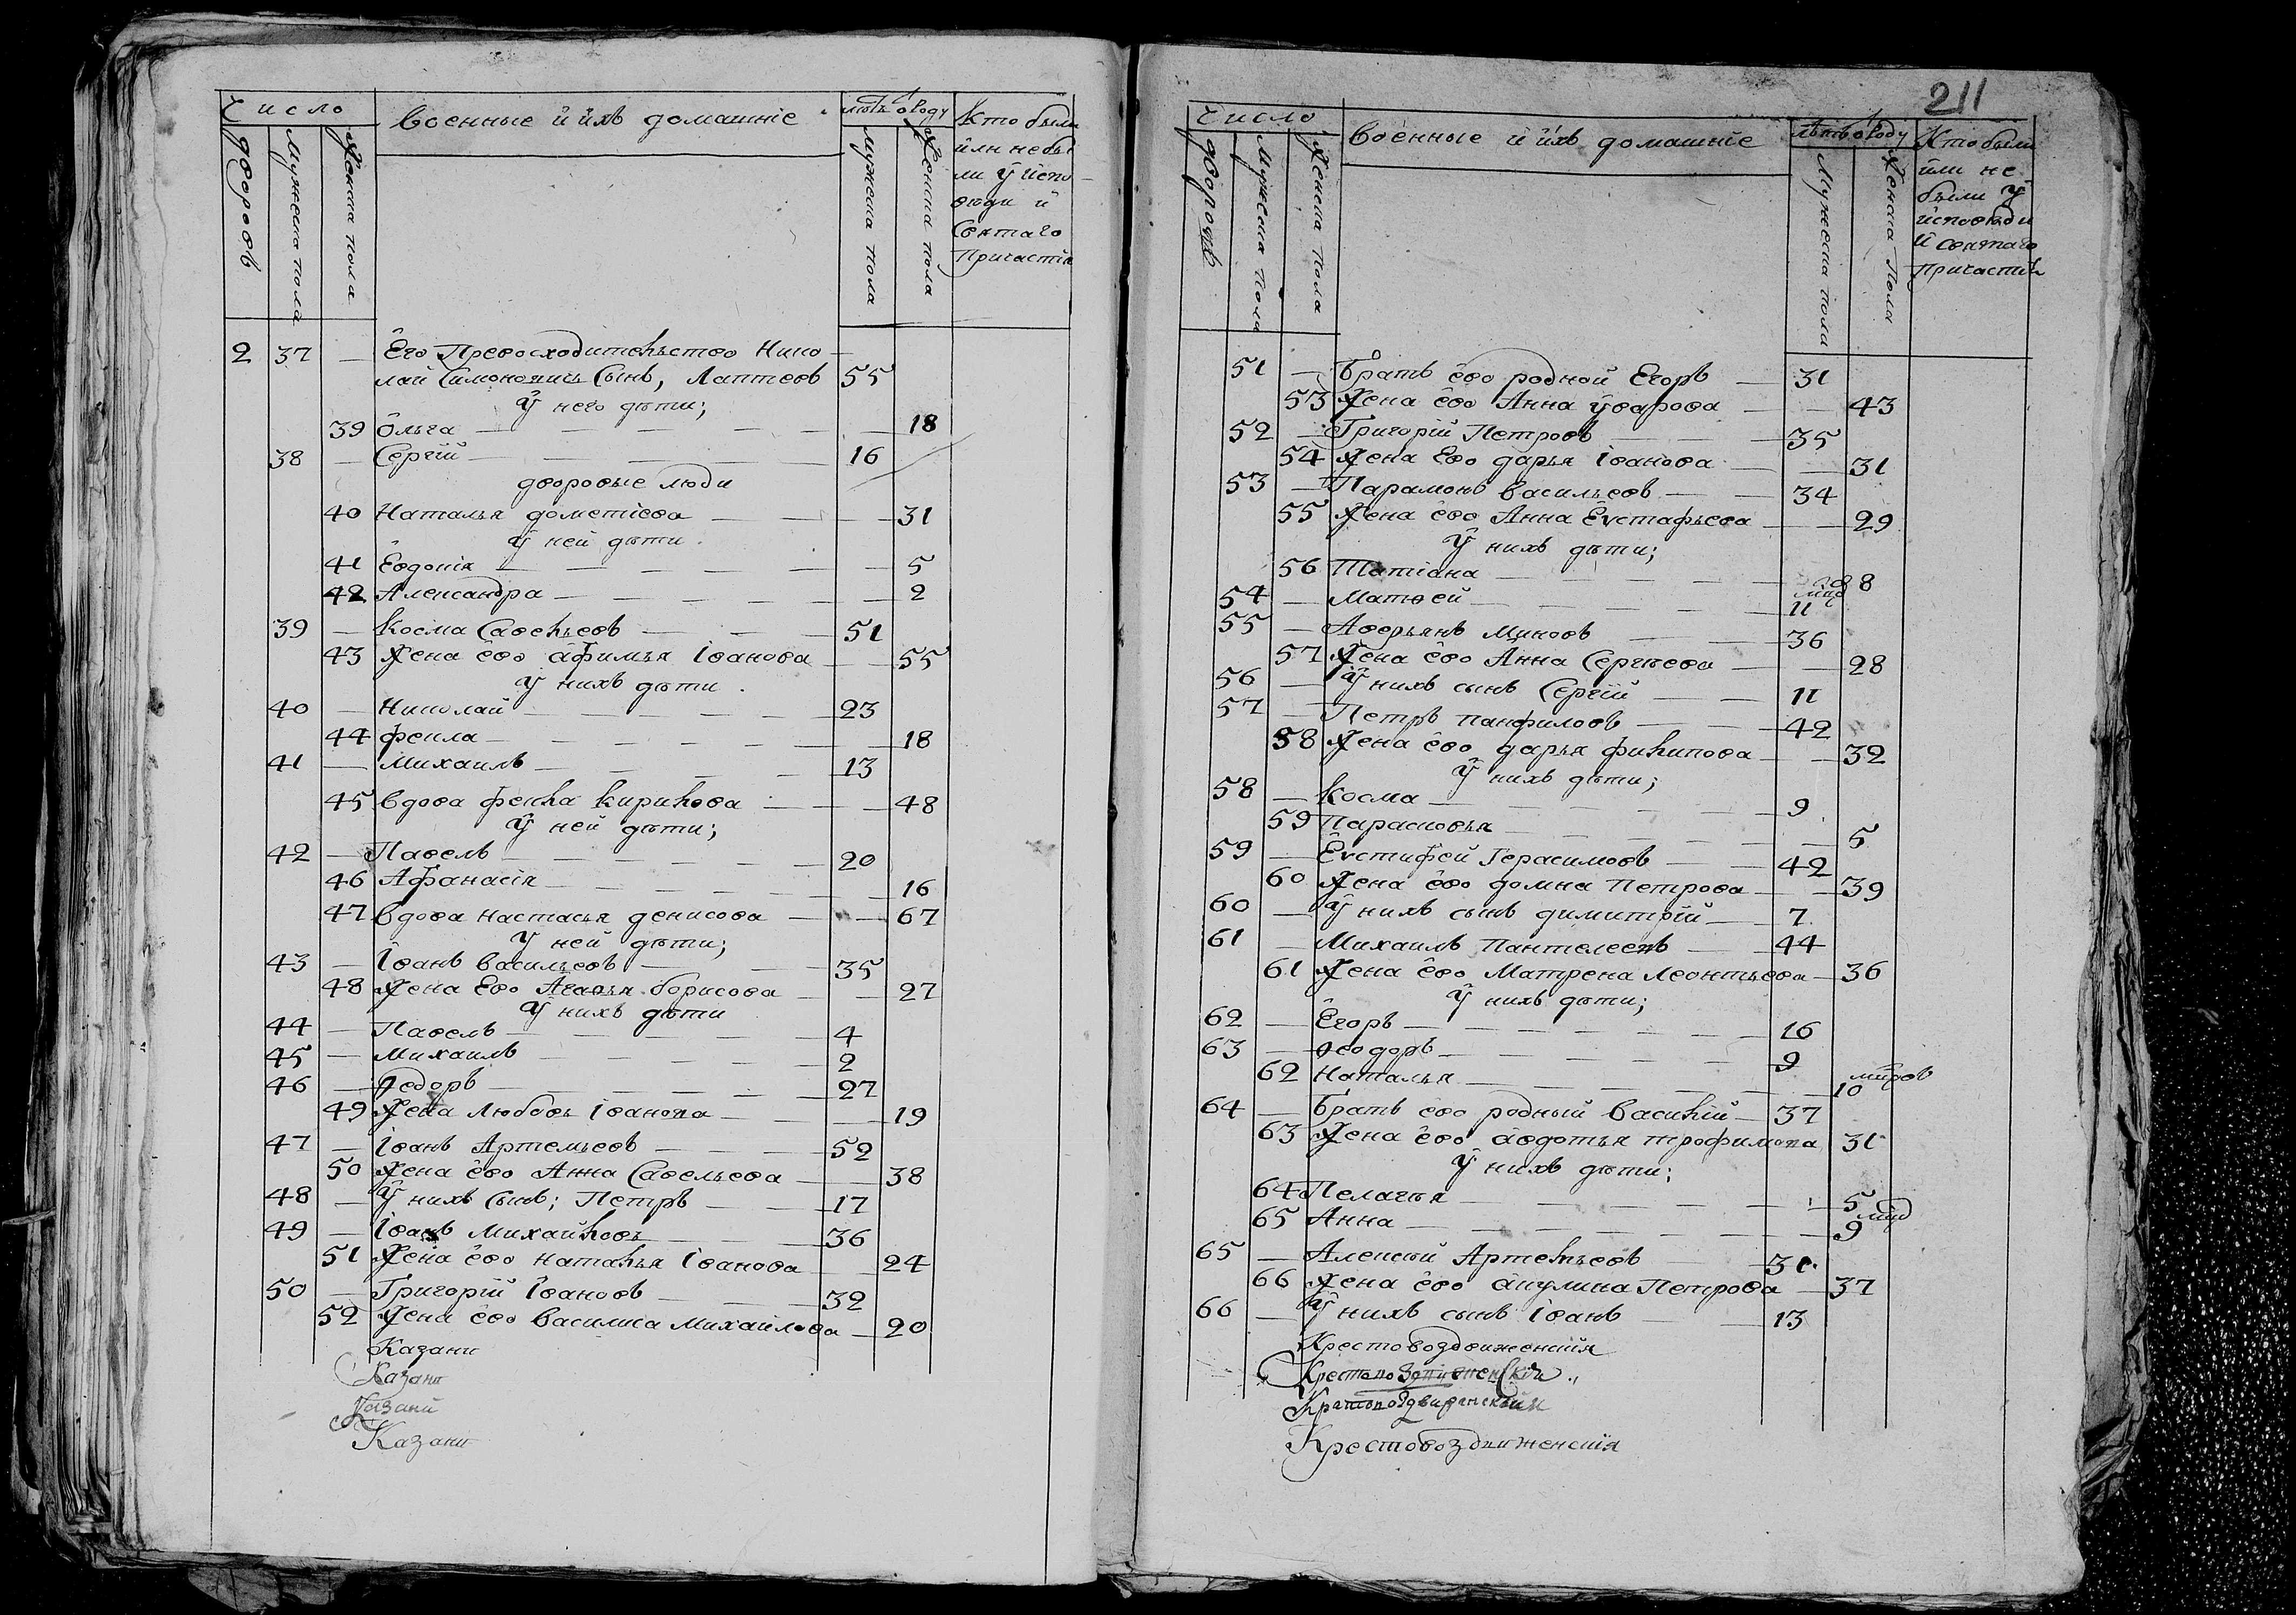 Число
военные й ихъ домашніе
лѣтъ ѿ Роду
Кто были
йли небы
ли ў йспо
вѣди й
Святаго
Причастія
дворовъ
Мужеска пола
Женска пола
мужеска пола
Женска пола
2 37 — Его Превосходительство Нико
лай Симоновичъ Сынъ, Лаптевъ 55
ў него дѣти;
39 Ольга — 18
38 — Сергій — 16
дворовые люди
40 Наталья дометіева — 31
ў ней дѣти
41 Евдокія — 5
42 Александра — 2
39 — Косма Савельевъ — 51
43 Жена ево афимья Іванова — 55
ў нихъ дѣти
40 — Николай — 23
44 фекла — 18
41 — Михаилъ — 13
45 вдова фекла кирилова — 48
ў ней дѣти;
42 — Павелъ — 20
46 Афанасія — 16
47 вдова настасья денисова — 67
ў ней дѣти;
43 — Іванъ васильевъ — 35
48 Жена Ево Агафья борисова — 27
ў нихъ дѣти
44 — Павелъ — 4
45 — Михаилъ — 2
46 — Ѳедоръ — 27
49 Жена Любовь Іванова — 19
47 — Іванъ Артемьевъ — 52
50 Жена ево Анна Савельева — 38
48 — ў нихъ Сынъ; Петръ — 17
49 — Іванъ Михайловъ — 36
51 Жена ево наталья Іванова 24
50 — Григорій Івановъ — 32
52 Жена ево василиса михаилова — 20
Казани
Казани
Казани
Казани
211
Число
военные й йхъ домашніе
лѣтъ ѿ Роду
Кто были
йли не
были ў
йсповѣди
й святаго
причастія
дворовъ
Мужеска пола
Женска пола
Мужеска пола
Женска пола
51 — Братъ ево родной Егоръ — 31
53 Жена ево Анна ўварова — 43
52 — Григорій Петровъ — 35
54 Жена Ево дарья Іванова — 31
53 — Парамонъ васильевъ — 34
55 Жена ево Анна Еѵстафьева — 29
ў нихъ дѣти;
56 Татіана — 8
54 — Матвей — 11
55 — Аверьянъ Миновъ — 36
57 Жена ево Анна Сергѣева — 28
56 — ў нихъ сынъ Сергій — 11
57 — Петръ панфиловъ — 42
58 Жена ево дарья филипова — 32
ў нихъ дѣти;
58 — косма — 9
59 Парасковья — 5
59 — Еѵстифей Герасимовъ — 42
60 Жена ево домна петрова — 39
60 — ў нихъ сынъ димитрій — 7
61 — Михаилъ пантелеевъ — 44
61 Жена ево Матрена леонтьева — 36
ў нихъ дѣти;
62 — Егоръ — 16
63 — Ѳеодоръ — 9
62 Наталья — 10
64 — Братъ ево родный василій — 37
63 Жена ево авдотья трофимова 31
ў нихъ дѣти;
64 Пелагея — 5
65 Анна — 9
65 — Алексѣй Артельевъ — 31
66 Жена ево акулина Петрова — 37
66 — ў нихъ сынъ Іванъ — 13
Крестовоздвиженскія
Крестовоздвиженскія